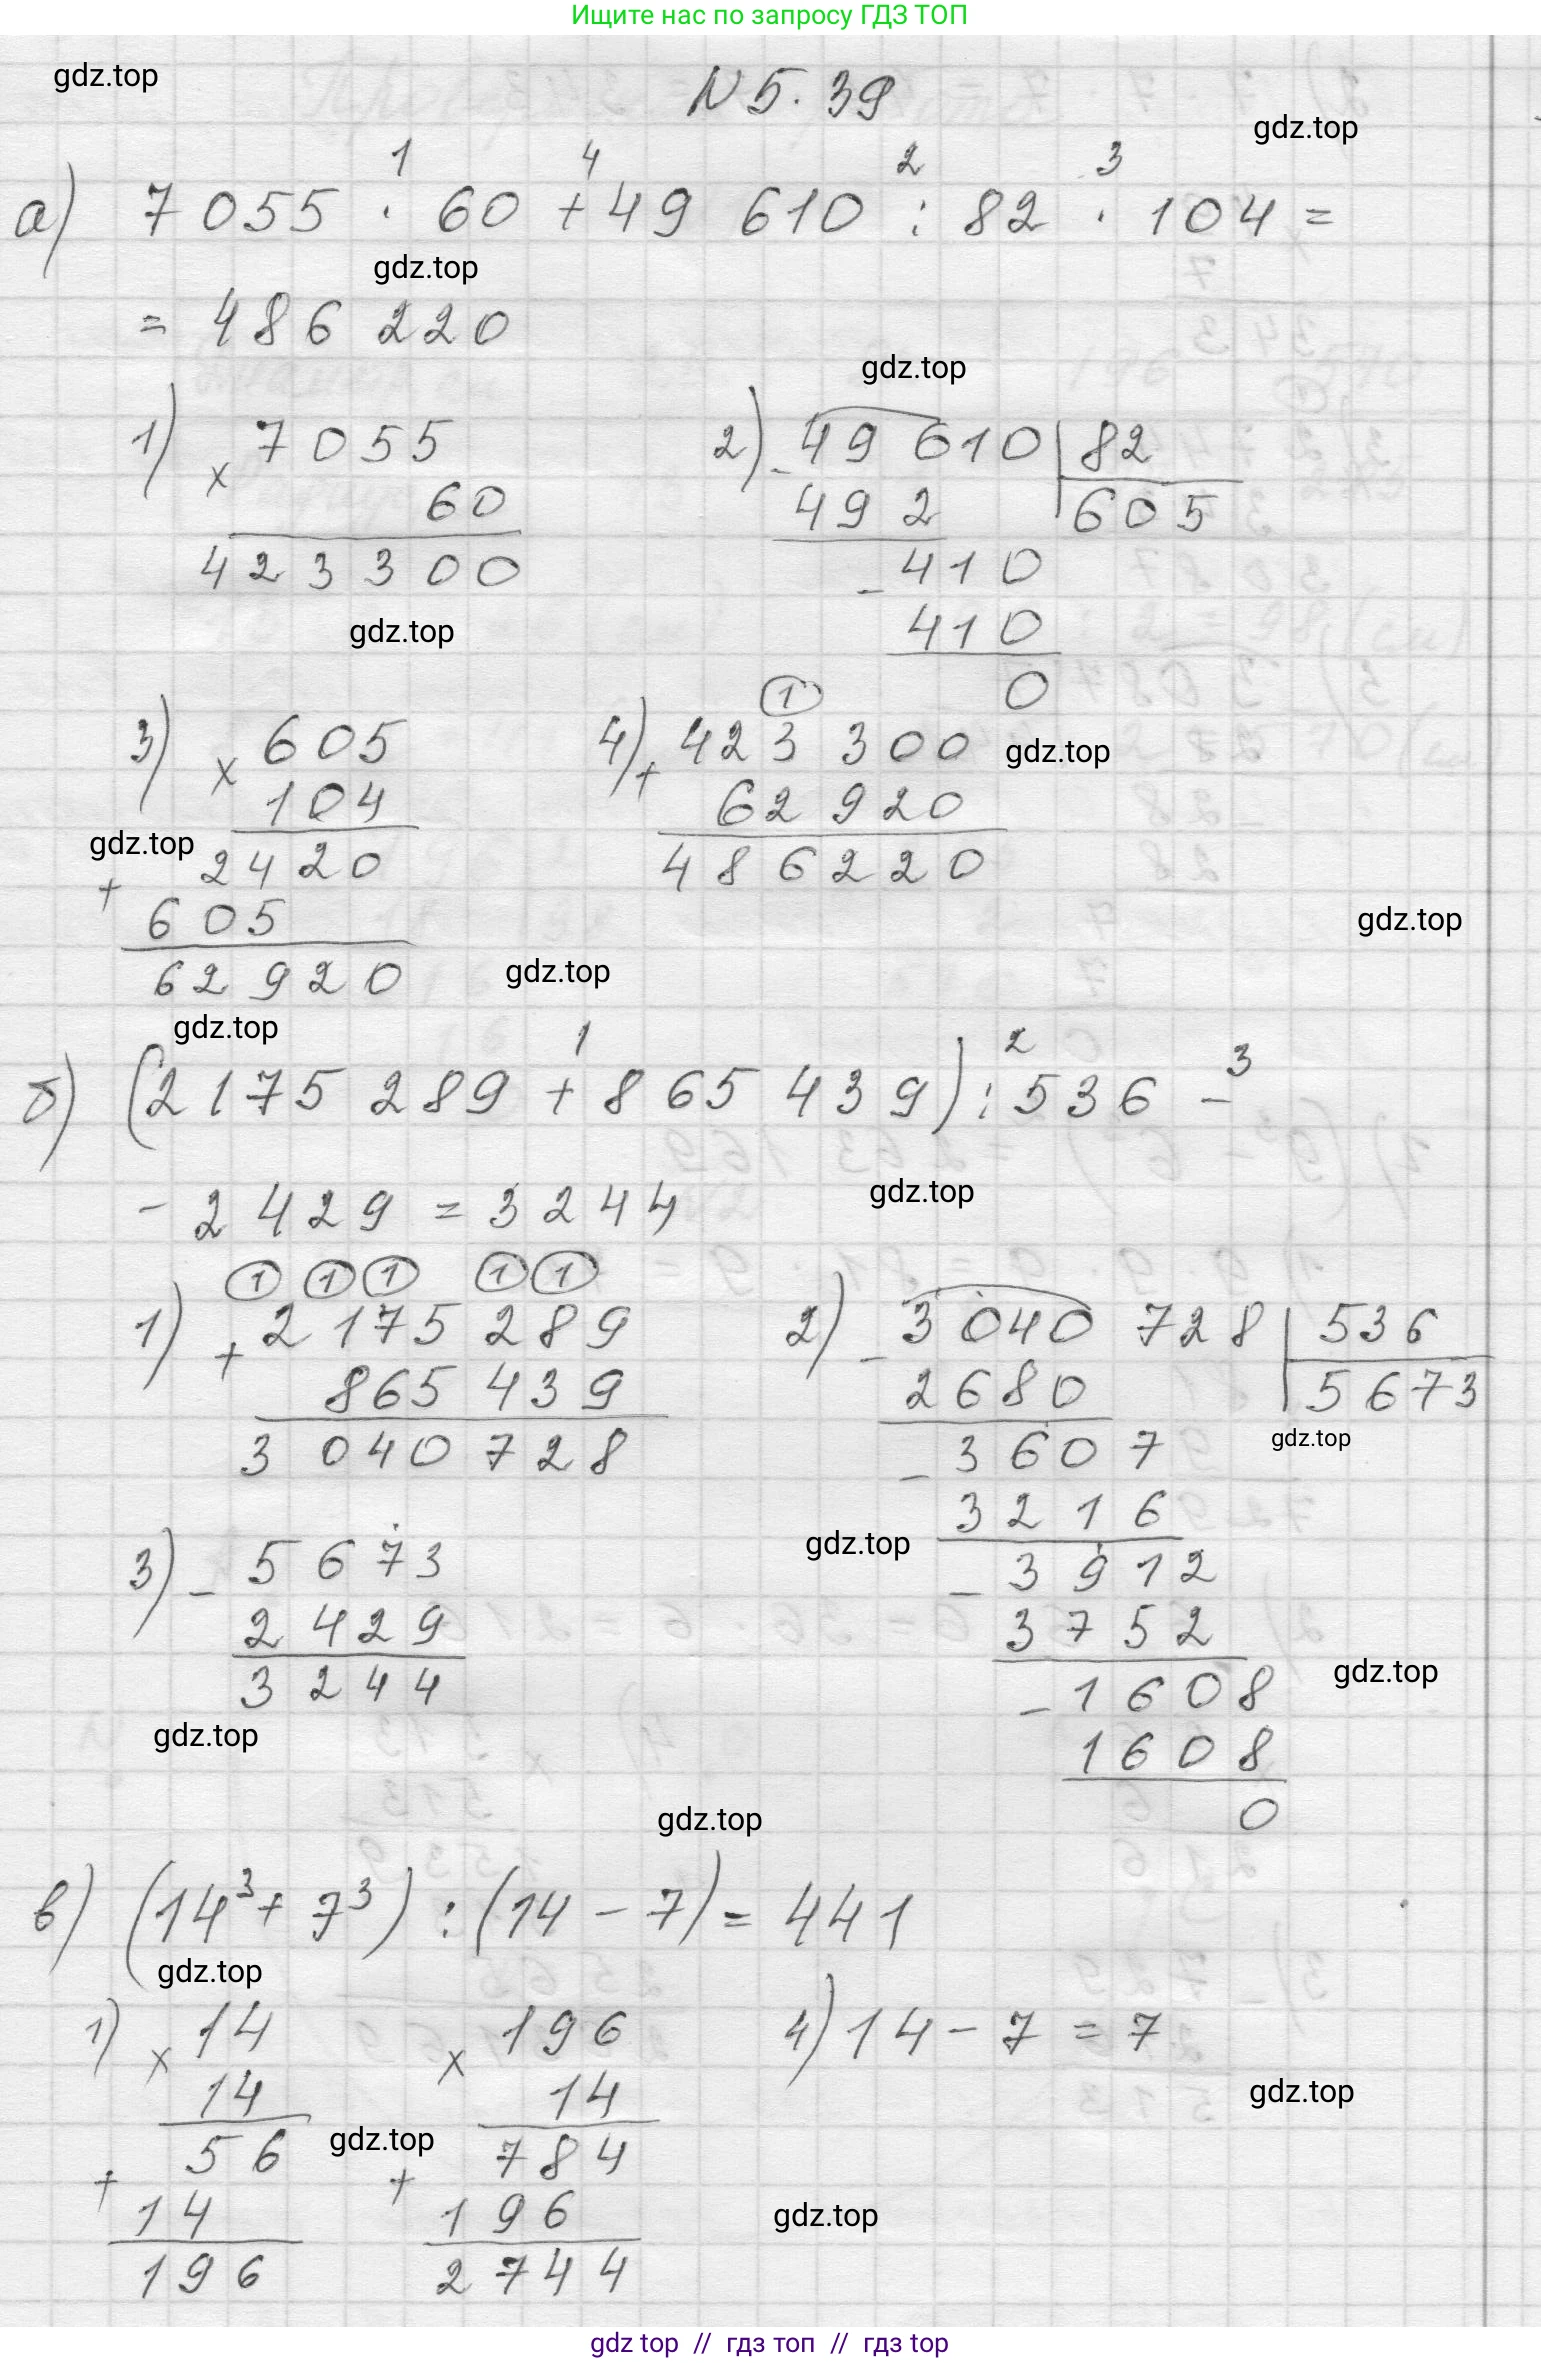 Ищите нас по запросу ГДЗ ТОП
gdz.top
N 5.39
gdz.top
1 4 2 3
а) 7055 · 60 + 49 610 : 82 · 104 =
gdz.top
= 486 220
gdz.top
1) × 7055
60
423 300
2) - 49 610 | 82
492 605
- 410
410
0
gdz.top
3) × 605
104
gdz.top
+ 2420
605
62 920
1
4) + 423 300
62 920
486 220
gdz.top
gdz.top
gdz.top
gdz.top
1 2 3
б) (2175 289 + 865 439) : 536 -
- 2429 = 3244
gdz.top
1 1 1 1 1
1) + 2 175 289
865 439
3 040 728
2) - 3 040 728 | 536
2680 5673
gdz.top
- 3607
3216
- 3912
3752
- 1608
1608
0
gdz.top
3) - 5673
2429
3244
gdz.top
gdz.top
gdz.top
в) (14³ + 7³) : (14 - 7) = 441
gdz.top
1) × 14
14
+ 56
14
196
gdz.top
× 196
14
+ 784
196
2744
4) 14 - 7 = 7
gdz.top
gdz.top
gdz top // гдз топ // гдз top